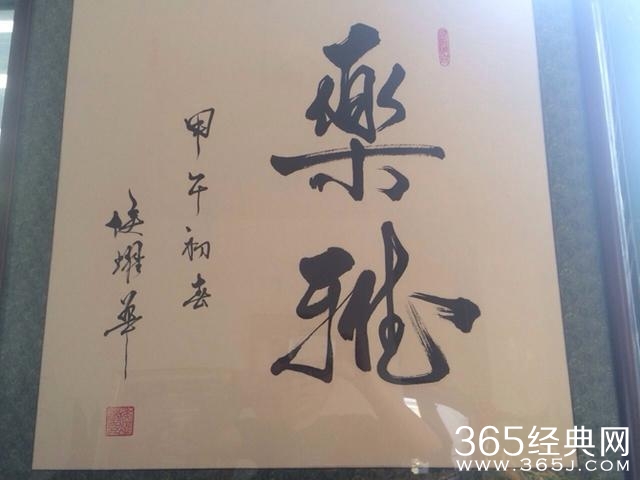 樂雅
甲午初春
侯耀華
365经典网
WWW.365J.COM